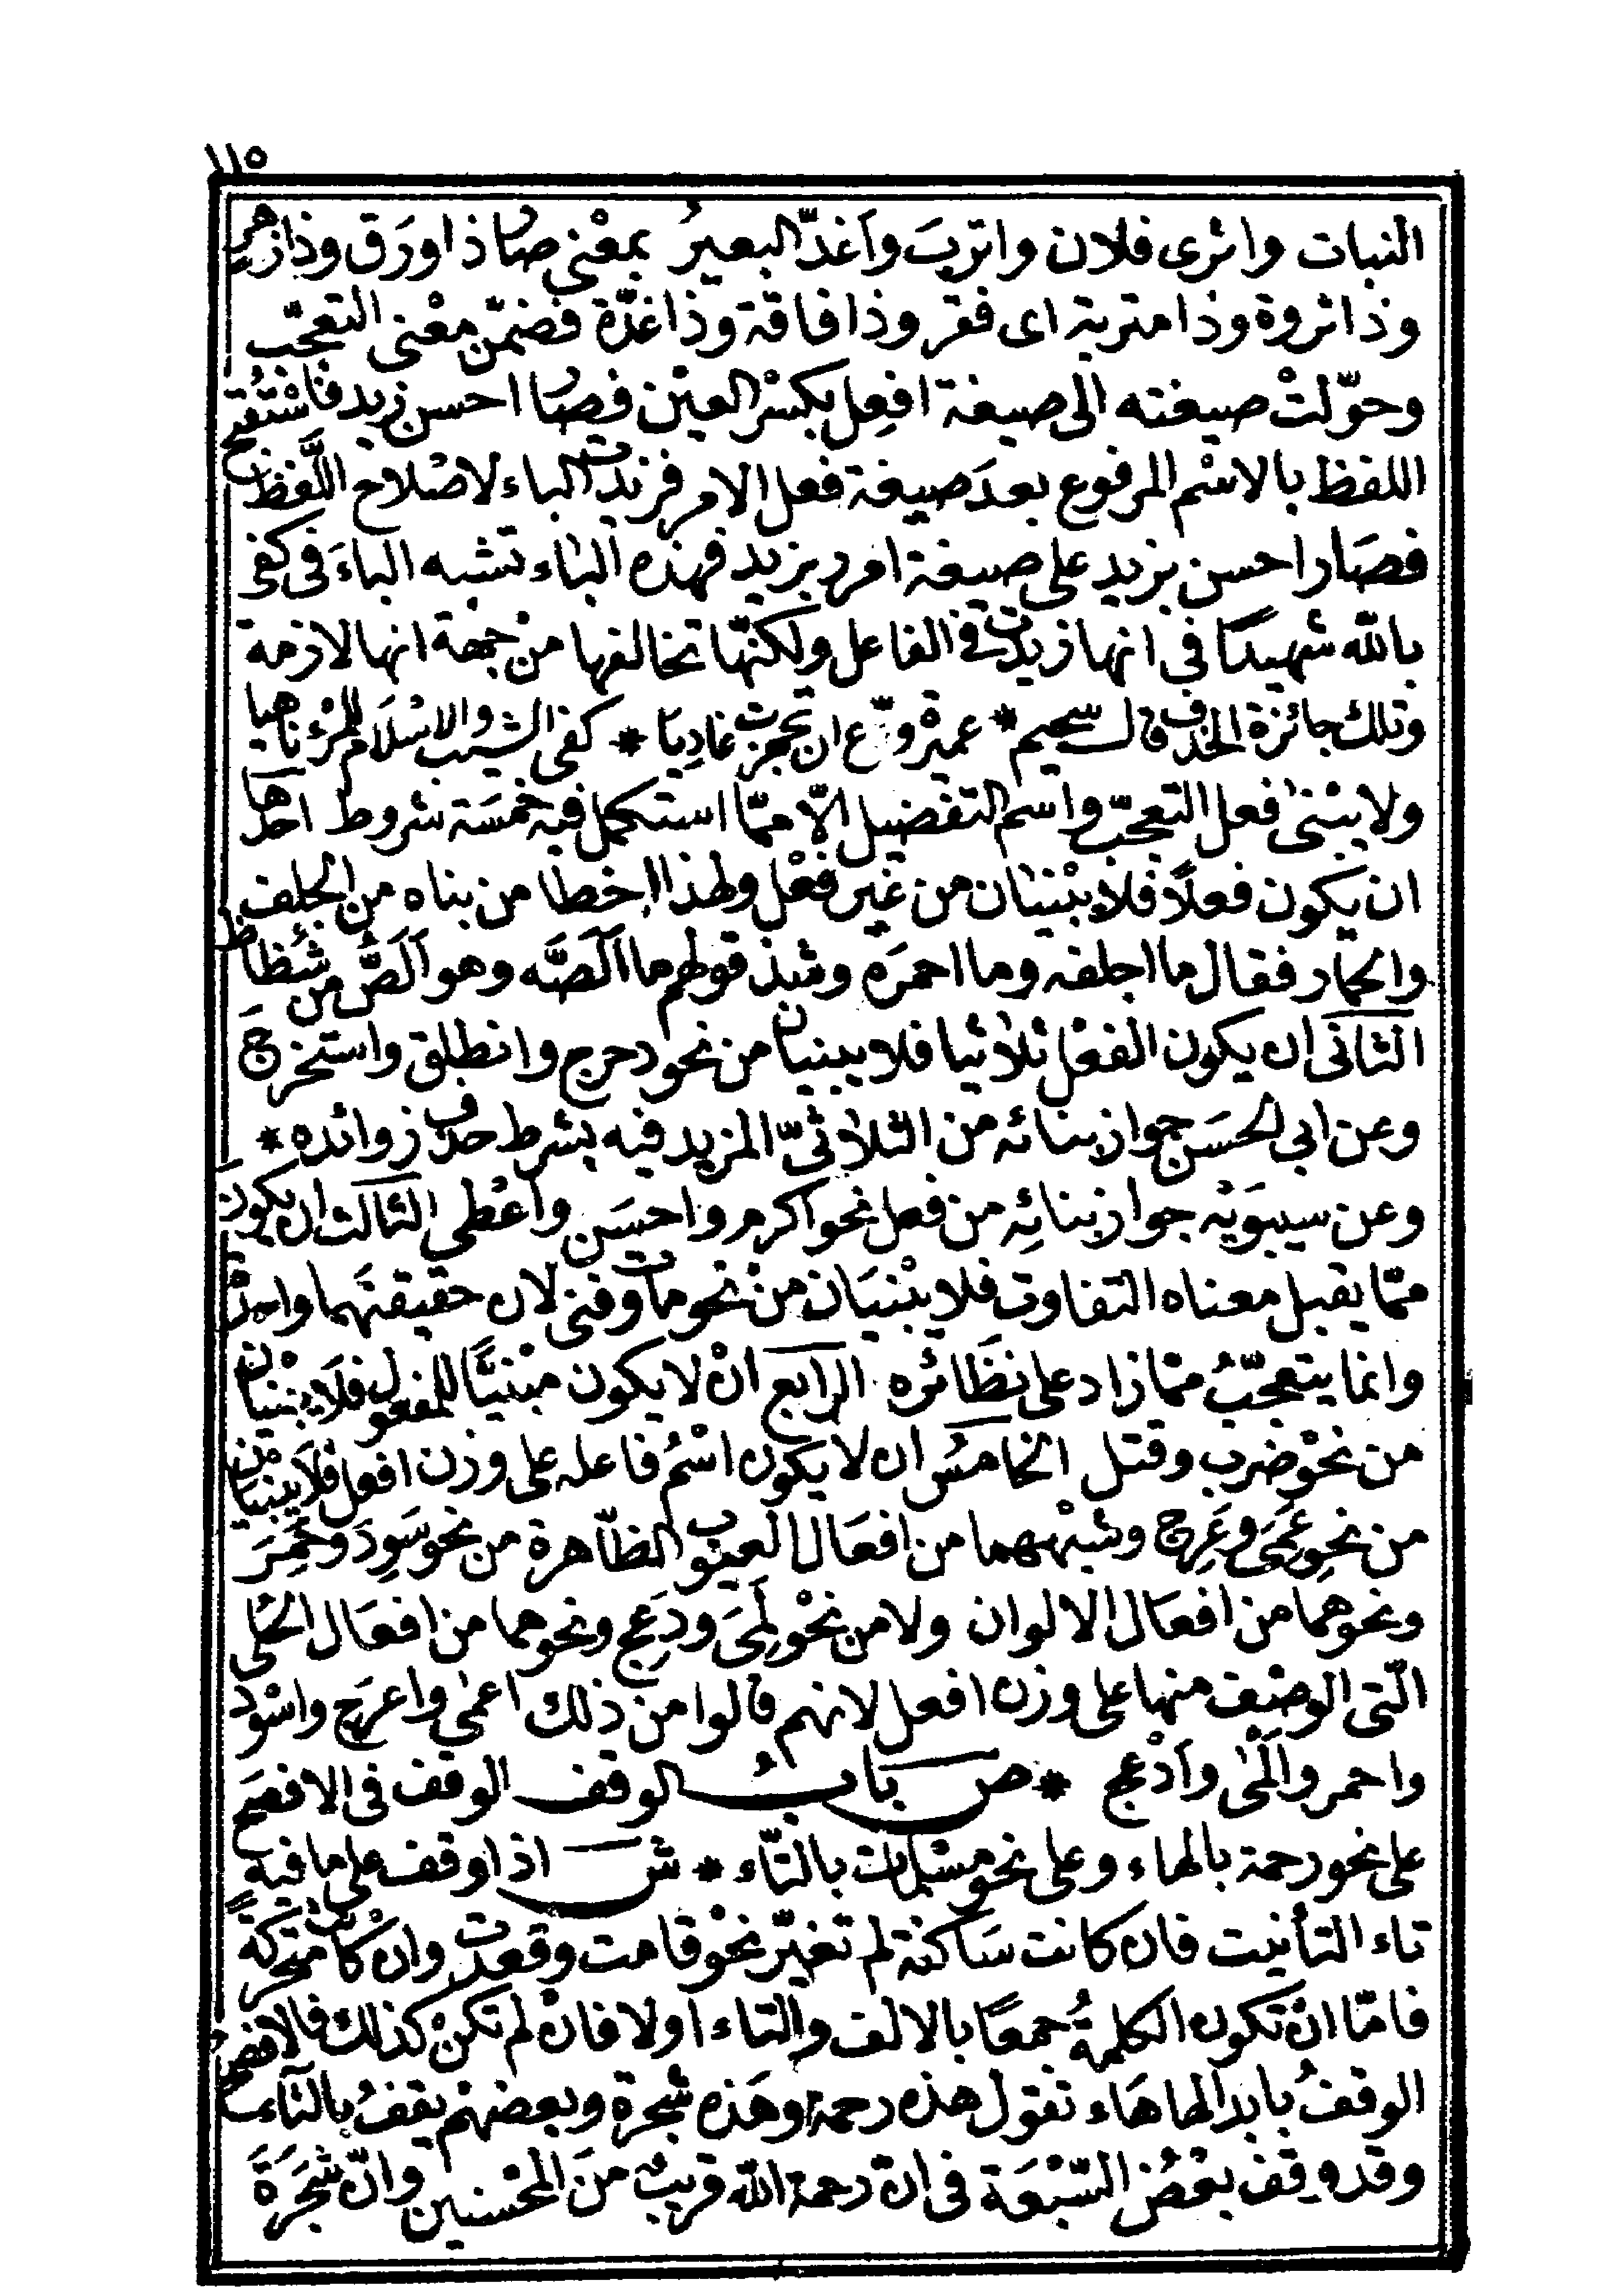 ١١٥
النبات واثرى فلان واترب واغدّ البعيرُ بمعْنى صار ذا اورَق وذا زهرٍ
وذا ثروة وذا متربة اى فقر وذا فاقة وذا غدّة فضمّن معْنى التعجّب
وحوّلتْ صيغته الى صيغة افعِل بكسْر العيْن فصار احسن زيد فاسْتُقبح
اللفظ بالاسْم المرفوع بعدَ صيغة فعل الامر فزيدت الباء لاصْلاح اللَّفظ
فصَار احسن بزيد على صيغة امرر بزيد فهذه الباء تشبه الباءَ فى كفى
بالله شهيدًا فى انها زيدت فى الفاعل ولكنّها تخالفها من جهة انها لازمة
وتلك جائزة الحذف قال سحيم * عميرْة ودّع ان تجهزت غاديا * كفى الشيب والاسْلام للمرْء ناهيا
ولا يبْنى فعل التعجّب واسم التفضيل الّا ممّا استكمل فيه خمسَة شروط احدها
ان يكون فعلًا فلا يبْنيان من غير فعْل ولهذا اخطا من بناه من الجلف
والحمار فقال ما اجلفه وما احمرَه وشذ قولهم ما اَلَصَّه وهو اَلَصُّ من شظاظ
الثانى ان يكون الفعْل ثلاثيا فلا يبنيان من نحو دحرج وانطلق واستخرَج
وعن ابى الحسَن جواز بنائه من الثلاثىّ المزيد فيه بشرط حذف زوائده *
وعن سيبوَيْه جواز بنائِه من فعل نحو اكرم واحسَن واعْطى الثالث ان يكون
ممّا يقبل معناه التفاوت فلا يبْنيَان منْ نحو مات وفنى لان حقيقتهما واحدة
وانما يتعجّبُ ممّا زاد على نظَائره الرابع انْ لا يكون مبْنيًّا للمفعول فلَا يبْنيان
من نحْو ضرب وقتل الخامسُ ان لا يكون اسْمُ فاعله على وزن افعل فلَا يبنيان
من نحو عَمىَ وعَرِج وشبْههما من افعَال العيوب الظّاهرة من نحو سَوِدَ وحَمِرَ
ونحوهما من افعَال الالوان ولا من نحْو لَمَىَ ودَعِج ونحوهما من افعَال الحُلى
الّتى الوصْف منها على وزن افعل لانهم قالوا من ذلك اعمٰى واعرَج واسْود
واحمر واَلْمٰى واَدْعج * ص بابُ الوقف الوقف فى الافصَح
على نحو رحمة بالهاء وعلى نحو مسْلمات بالتّاء * ش اذا وقف على ما فيه
تاء التأنيث فان كانت سَاكنة لم تغيّر نحْو قامت وقعدت وان كانْت متحركَةً
فامّا انْ تكون الكلمةُ جمعًا بالالف والتاء اولا فانْ لم تكنْ كذلك فالافصح
الوقفُ بابدالها هَاء تقول هذه رحمة وهَذه شجرة وبعضهمْ يقفُ بالتاء
وقد وقف بعْضُ السّبْعَة فى انّ رحمة الله قريبٌ منَ المحْسنين وانّ شَجَرَةَ